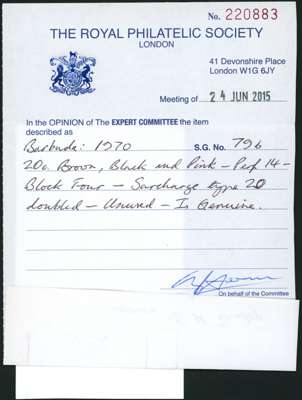 No. 220883
THE ROYAL PHILATELIC SOCIETY
LONDON
41 Devonshire Place
London W1G 6JY
Meeting of 24 JUN 2015
In the OPINION of The EXPERT COMMITTEE the item
described as
Barbuda: 1970 S.G. No. 79b
20c. Brown, Black and Pink - Perf 14 -
Block Four - Surcharge type 20
doubled - Unused - Is Genuine.
On behalf of the Committee